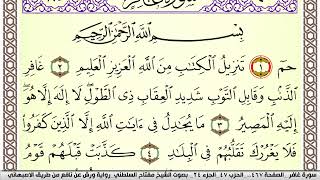 سورة غافر
بِسْمِ اللَّهِ الرَّحْمَٰنِ الرَّحِيمِ
حمٓ ١ تَنزِيلُ الْكِتَٰبِ مِنَ اللَّهِ الْعَزِيزِ الْعَلِيمِ ٢ غَافِرِ
الذَّنۢبِ وَقَابِلِ التَّوْبِ شَدِيدِ الْعِقَابِ ذِى الطَّوْلِ لَا إِلَٰهَ إِلَّا هُوَ
إِلَيْهِ الْمَصِيرُ ٣ مَا يُجَٰدِلُ فِى ءَايَٰتِ اللَّهِ إِلَّا الَّذِينَ كَفَرُوا
فَلَا يَغْرُرْكَ تَقَلُّبُهُمْ فِى الْبِلَٰدِ ٤ كَذَّبَتْ قَبْلَهُمْ قَوْمُ
سورة غافر - الصفحة ٤٦٧ - الحزب ٤٧ الجزء ٢٤ - بصوت الشيخ مفتاح السلطني - رواية ورش عن نافع من طريق الاصبهاني